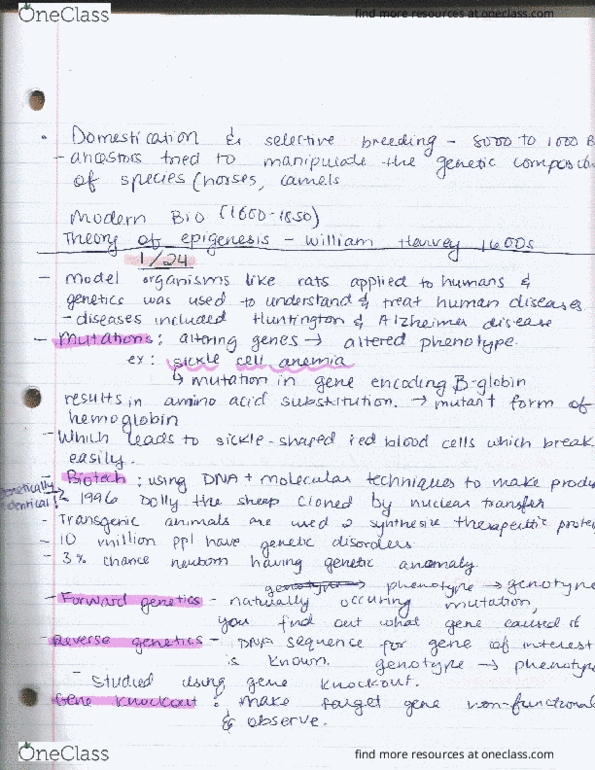 OneClass
find more resources at oneclass.com
• Domestication & selective breeding - 8000 to 1000 B
- ancestors tried to manipulate the genetic composit
of species (horses, camels
Modern Bio (1600-1850)
Theory of epigenesis - William Harvey 1600s
1/24
- Model organisms like rats applied to humans &
genetics was used to understand & treat human diseases
- diseases included Huntington & Alzheimer disease
- Mutations: altering genes → altered phenotype.
ex: sickle cell anemia
↳ mutation in gene encoding β-globin
results in amino acid substitution. → mutant form of
hemoglobin
- Which leads to sickle-shaped red blood cells which break
easily.
- Biotech: using DNA + molecular techniques to make produ
genetically identical! 1996 Dolly the sheep cloned by nuclear transfer
- Transgenic animals are used 2 synthesize therapeutic prote
- 10 million ppl have genetic disorders
- 3% chance newborn having genetic anomaly
genotype → phenotype → genotype
- Forward genetics - naturally occuring mutation,
you find out what gene caused it
- Reverse genetics - DNA sequence for gene of interest
is known. genotype → phenotype
- Studied using gene knockout.
- Gene knockout: make target gene non-functional
& observe.
OneClass
find more resources at oneclass.com